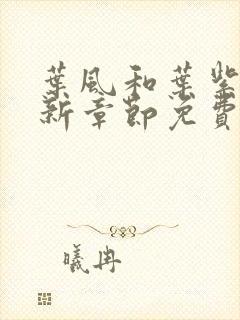 葉風和葉紫
新章節免費
曦冉